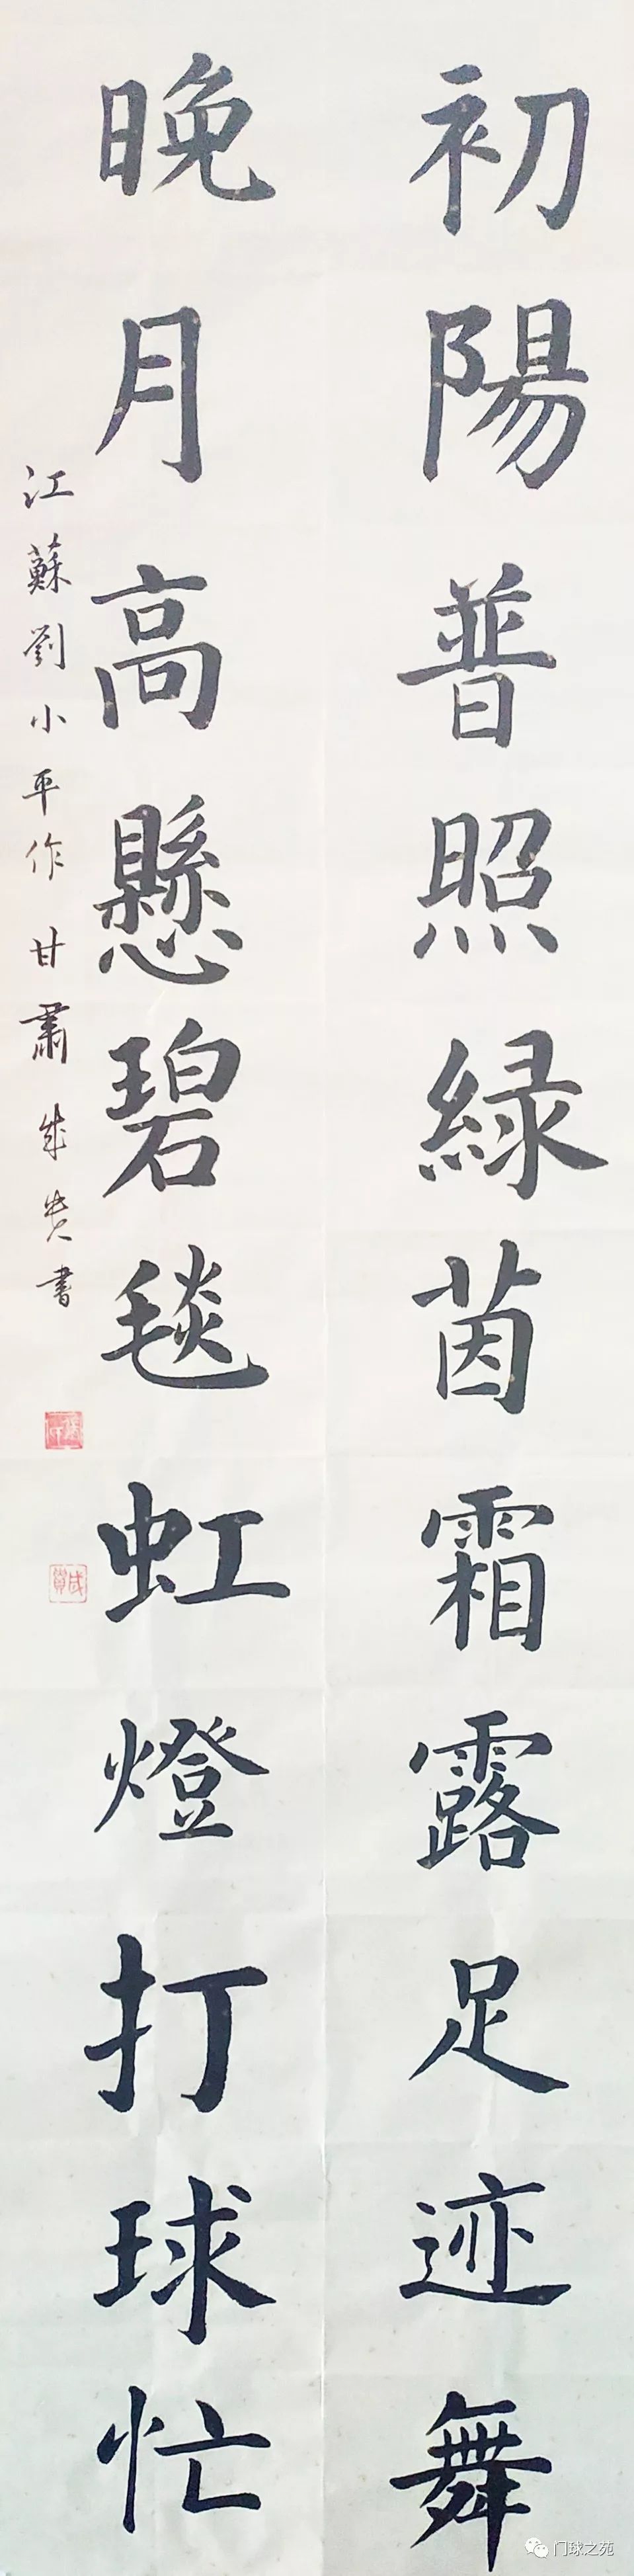 初陽普照緑茵霜露足迹舞
晚月高懸碧毯虹燈打球忙
江蘇劉小平作甘肅成贵書
成貴
门球之苑